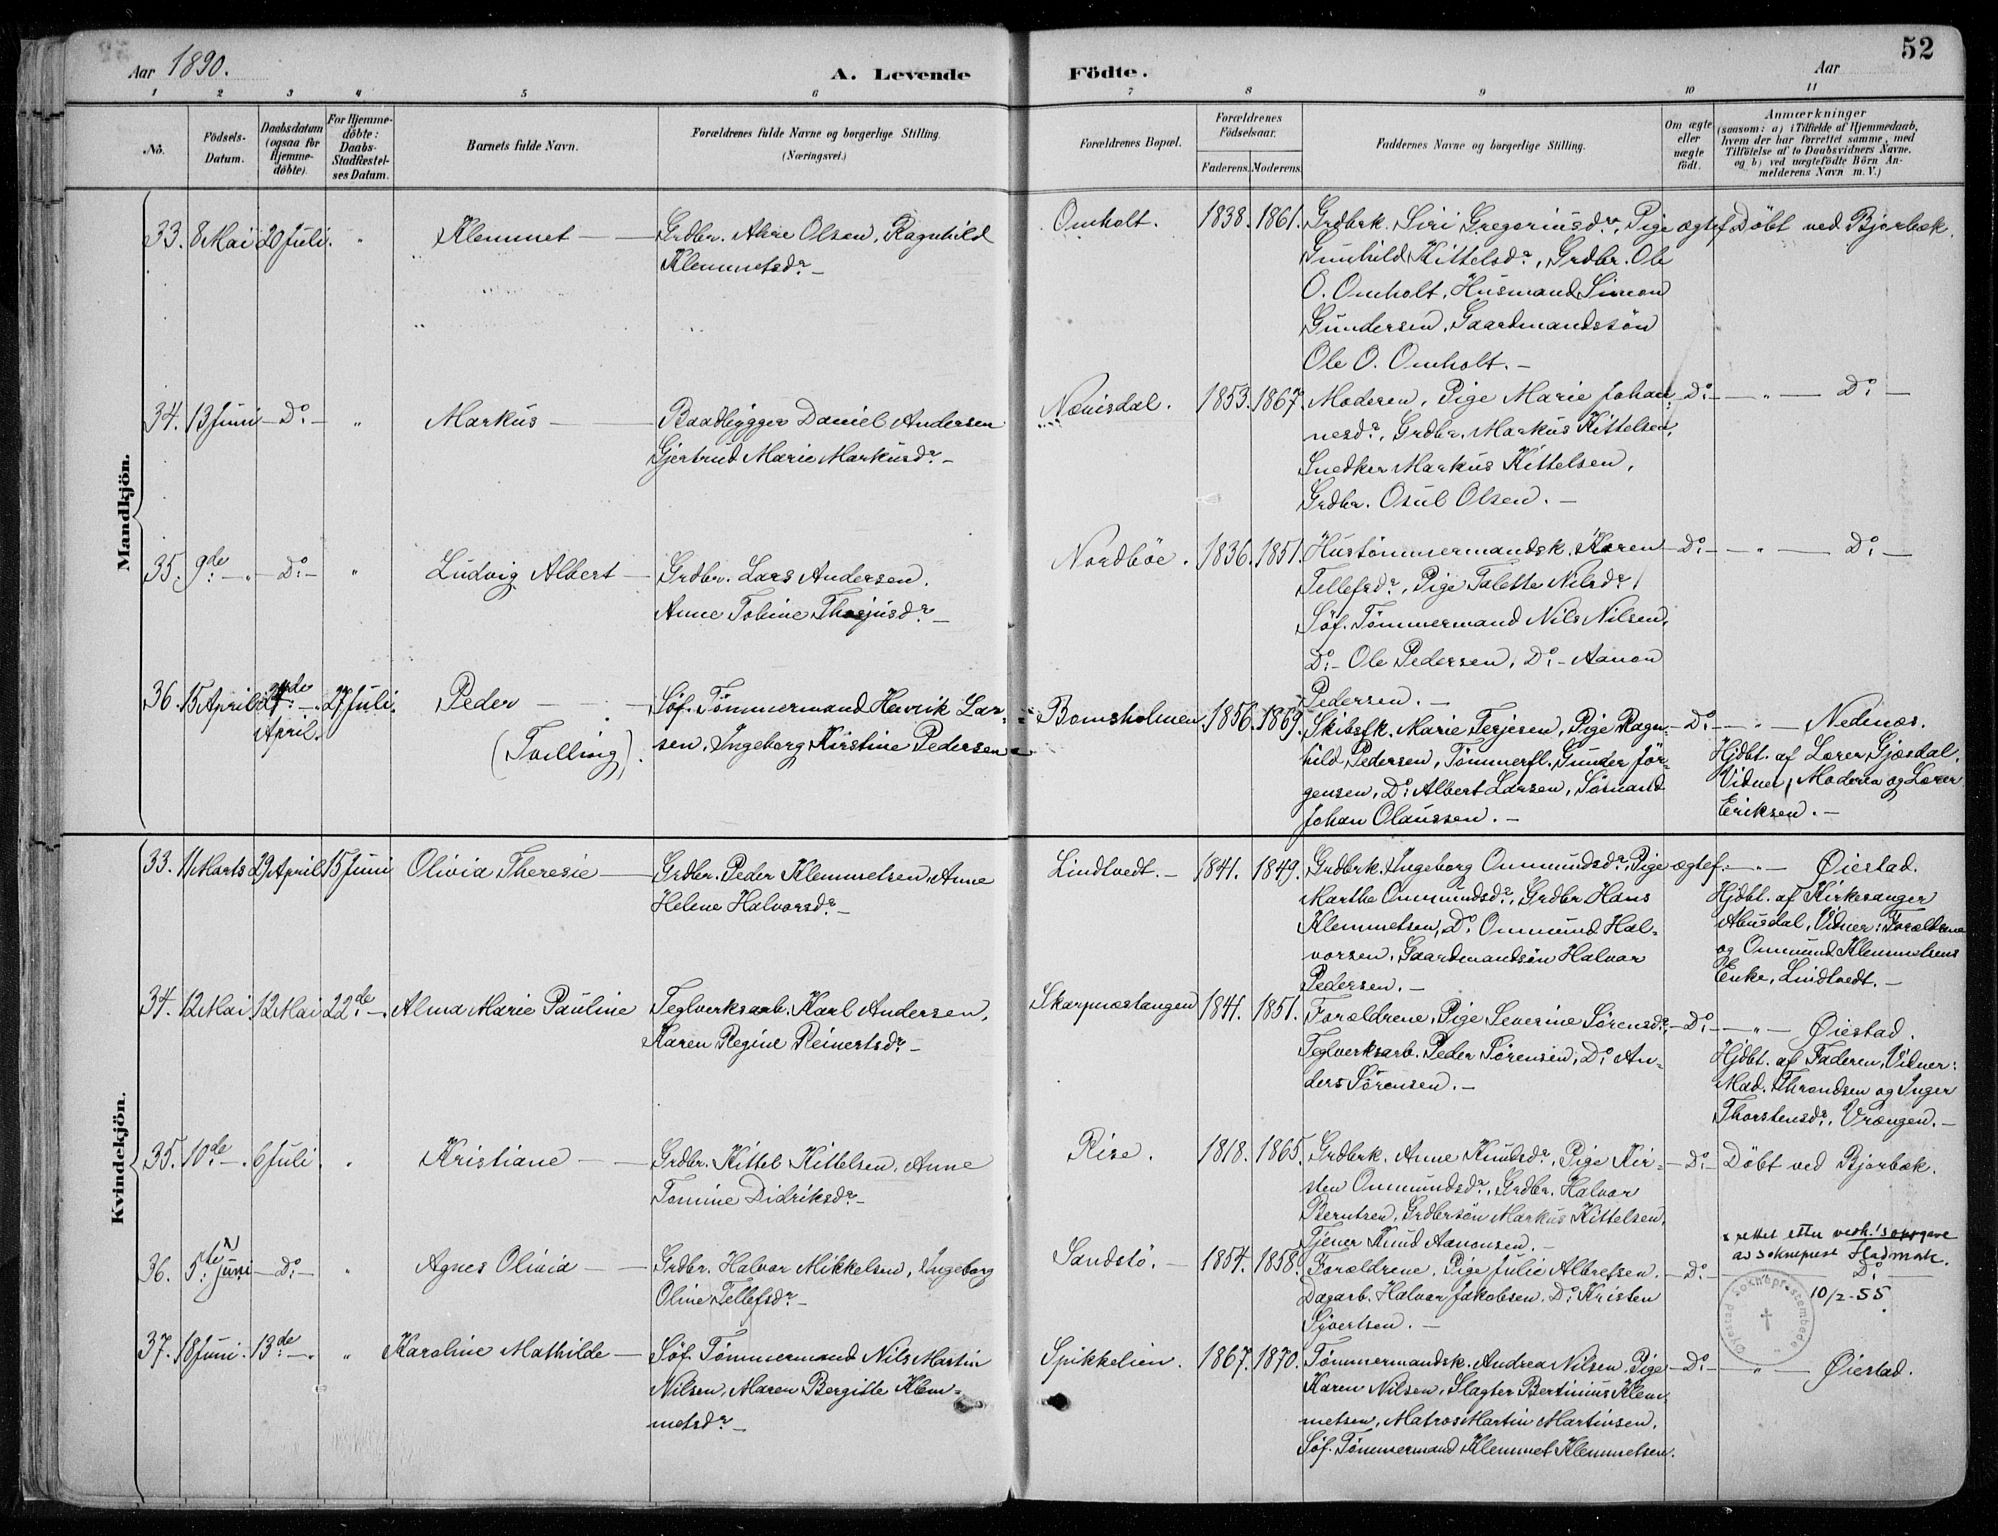 Aar 1890.
A. Levende
Födte.
Aar
52
1 2 3 4 5 6 7 8 9 10 11
No.
Födsels-
Datum.
Daabsdatum
(ogsaa for
Hjemme-
döbte).
For Hjemme-
döbte:
Daabs-
Stadfæstel-
ses Datum.
Barnets fulde Navn.
Forældrenes fulde Navne og borgerlige Stilling.
(Næringsvei.)
Forældrenes Bopæl.
Forældrenes
Födselsaar.
Faderens. Moderens.
Faddernes Navne og borgerlige Stilling.
Om ægte
eller
uægte
födt.
Anmærkninger
(saasom: a) i Tilfælde af Hjemmedaab,
hvem der har forrettet samme, med
Tilföielse af to Daabsvidners Navne.
og b) ved uægtefödte Börn An-
melderens Navn m. V.)
Mandkjön.
33. 8 Mai 20 Juli. " Klemmet —
Grdbr. Aare Olsen, Ragnhild
Klemmetsdr. —
Omholt. 1838. 1861.
Grdbrk. Siri Gregoriusdr, Pige
Gunhild Kittelsdr., Grdbr. Ole
O. Omholt, Husmand Simon
Gundersen, Gaardmandssøn
Ole O. Omholt. —
ægtef. Döbt ved Bjorbæk.
34. 13 Juni — Do. — " Markus —
Baadbygger Daniel Andersen
Gjertrud Marie Markusdr. —
Nævisdal. 1853. 1867.
Moderen, Pige Marie Johan-
nesdr., Grdbr. Markus Kittelsen,
Snedker Markus Kittelsen,
Grdbr. Osul Olsen. —
— Do. — — " — Do. —
35. 9de — " Do. — " Ludvig Albert —
Grdbr. Lars Andersen.
Anne Tobine Thorjusdr. —
Nordbøe. 1836. 1851.
Hustømmermandsk. Karen
Tellefsdr., Pige Talette Nilsdr,
Søf. Tømmermand Nils Nilsen,
Do. — Ole Pedersen, Do. — Aanon
Pedersen. —
— Do. — — " — Do. —
36. 15 April 27de — April. 27 Juli. Peder —
(Tvilling).
Søf. Tømmermand Henrik Lar-
sen, Ingeborg Kirstine Pedersen —
Bomsholmen. 1856. 1869.
Skibsfk. Marie Terjesen, Pige Ragn-
hild Pedersen, Tømmerfl. Gunder Jør-
gensen, Do. Albert Larsen, Sømand
Johan Olaussen. —
— Do. — — " — Nedenæs.
Hjdbt. af Lærer Gjæsdal,
Vidner, Moderen og Lærer
Eriksen. —
Kvindekjön.
33. 11 Marts 29 April 15 Juni Olivia Theresie —
Grdbr. Peder Klemmetsen, Anne
Helene Halvorsdr. —
Lindtvedt. — 1841. 1849.
Grdbrk. Ingeborg Ommundsdr, Pige
Marthe Ommundsdr., Grdbr Hans
Klemmetsen, Do. Ommund Hal-
vorsen, Gaardmandsøn Halvor
Pedersen. —
ægtef. — " — Øiestad.
Hjdbt. af Kirkesanger
Abusdal, Vidner: Forældrene
og Ommund Klemmetsens
Enke, Lindtvedt. —
34. 12 Mai. 12 Mai 22de —. Alma Marie Pauline
Teglverksarb. Karl Andersen,
Karen Regine Reinertsdr. —
Skarpnæstangen 1841. 1851.
Forældrene, Pige Severine Sørensdr.,
Teglverksarb. Peder Sørensen, Do. An-
ders Sørensen. —
— Do. — — " — Øiestad.
Hjdbt. af Faderen, Vidner:
Mad. Thrandsen og Inger
Thorstensdr., Vrængen. —
35. 10de —. 6 Juli. " Kristiane —
Grdbr. Kittel Kittelsen, Anne
Tomine Didriksdr. —
Rise. 1818. 1865.
Grdbrk. Anne Knudsdr., Pige Kir-
sten Ommundsdr., Grdbr. Halvor
Berntsen, Grdbrsøn Markus Kittelsen,
Tjener Knud Aanonsen. —
— Do. — Döbt ved Bjorbæk.
36. 5te Juni x — Do. — " Agnes Olivia —
Grdbr. Halvor Mikkelsen, Ingeborg
Oline Tellefsdr. —
Sandstø. — 1854. 1858.
Forældrene, Pige Julie Albretsen.
Dagarb. Halvor Jakobsen, Do. Kristen
Syvertsen. —
— Do. — Do.
x rettet etter vedk.'s oppgave
av sokneprest Hadmark.
10/2-55.
Øyestad Sokneprestembede
37. 18 Juni. 13de —. " Karoline Mathilde —
Søf. Tømmermand Nils Martin
Nilsen, Maren Bergitte Klem-
metsdr. —
Spikkelien. 1867. 1870.
Tømmermandsk. Andrea Nilsen, Pige
Karen Nilsen, Slagter Bertinius Klem-
metsen, Matros Martin Martinsen,
Søf. Tømmermand Klemmet Klemmetsen.
— Do. — " — Øiestad.